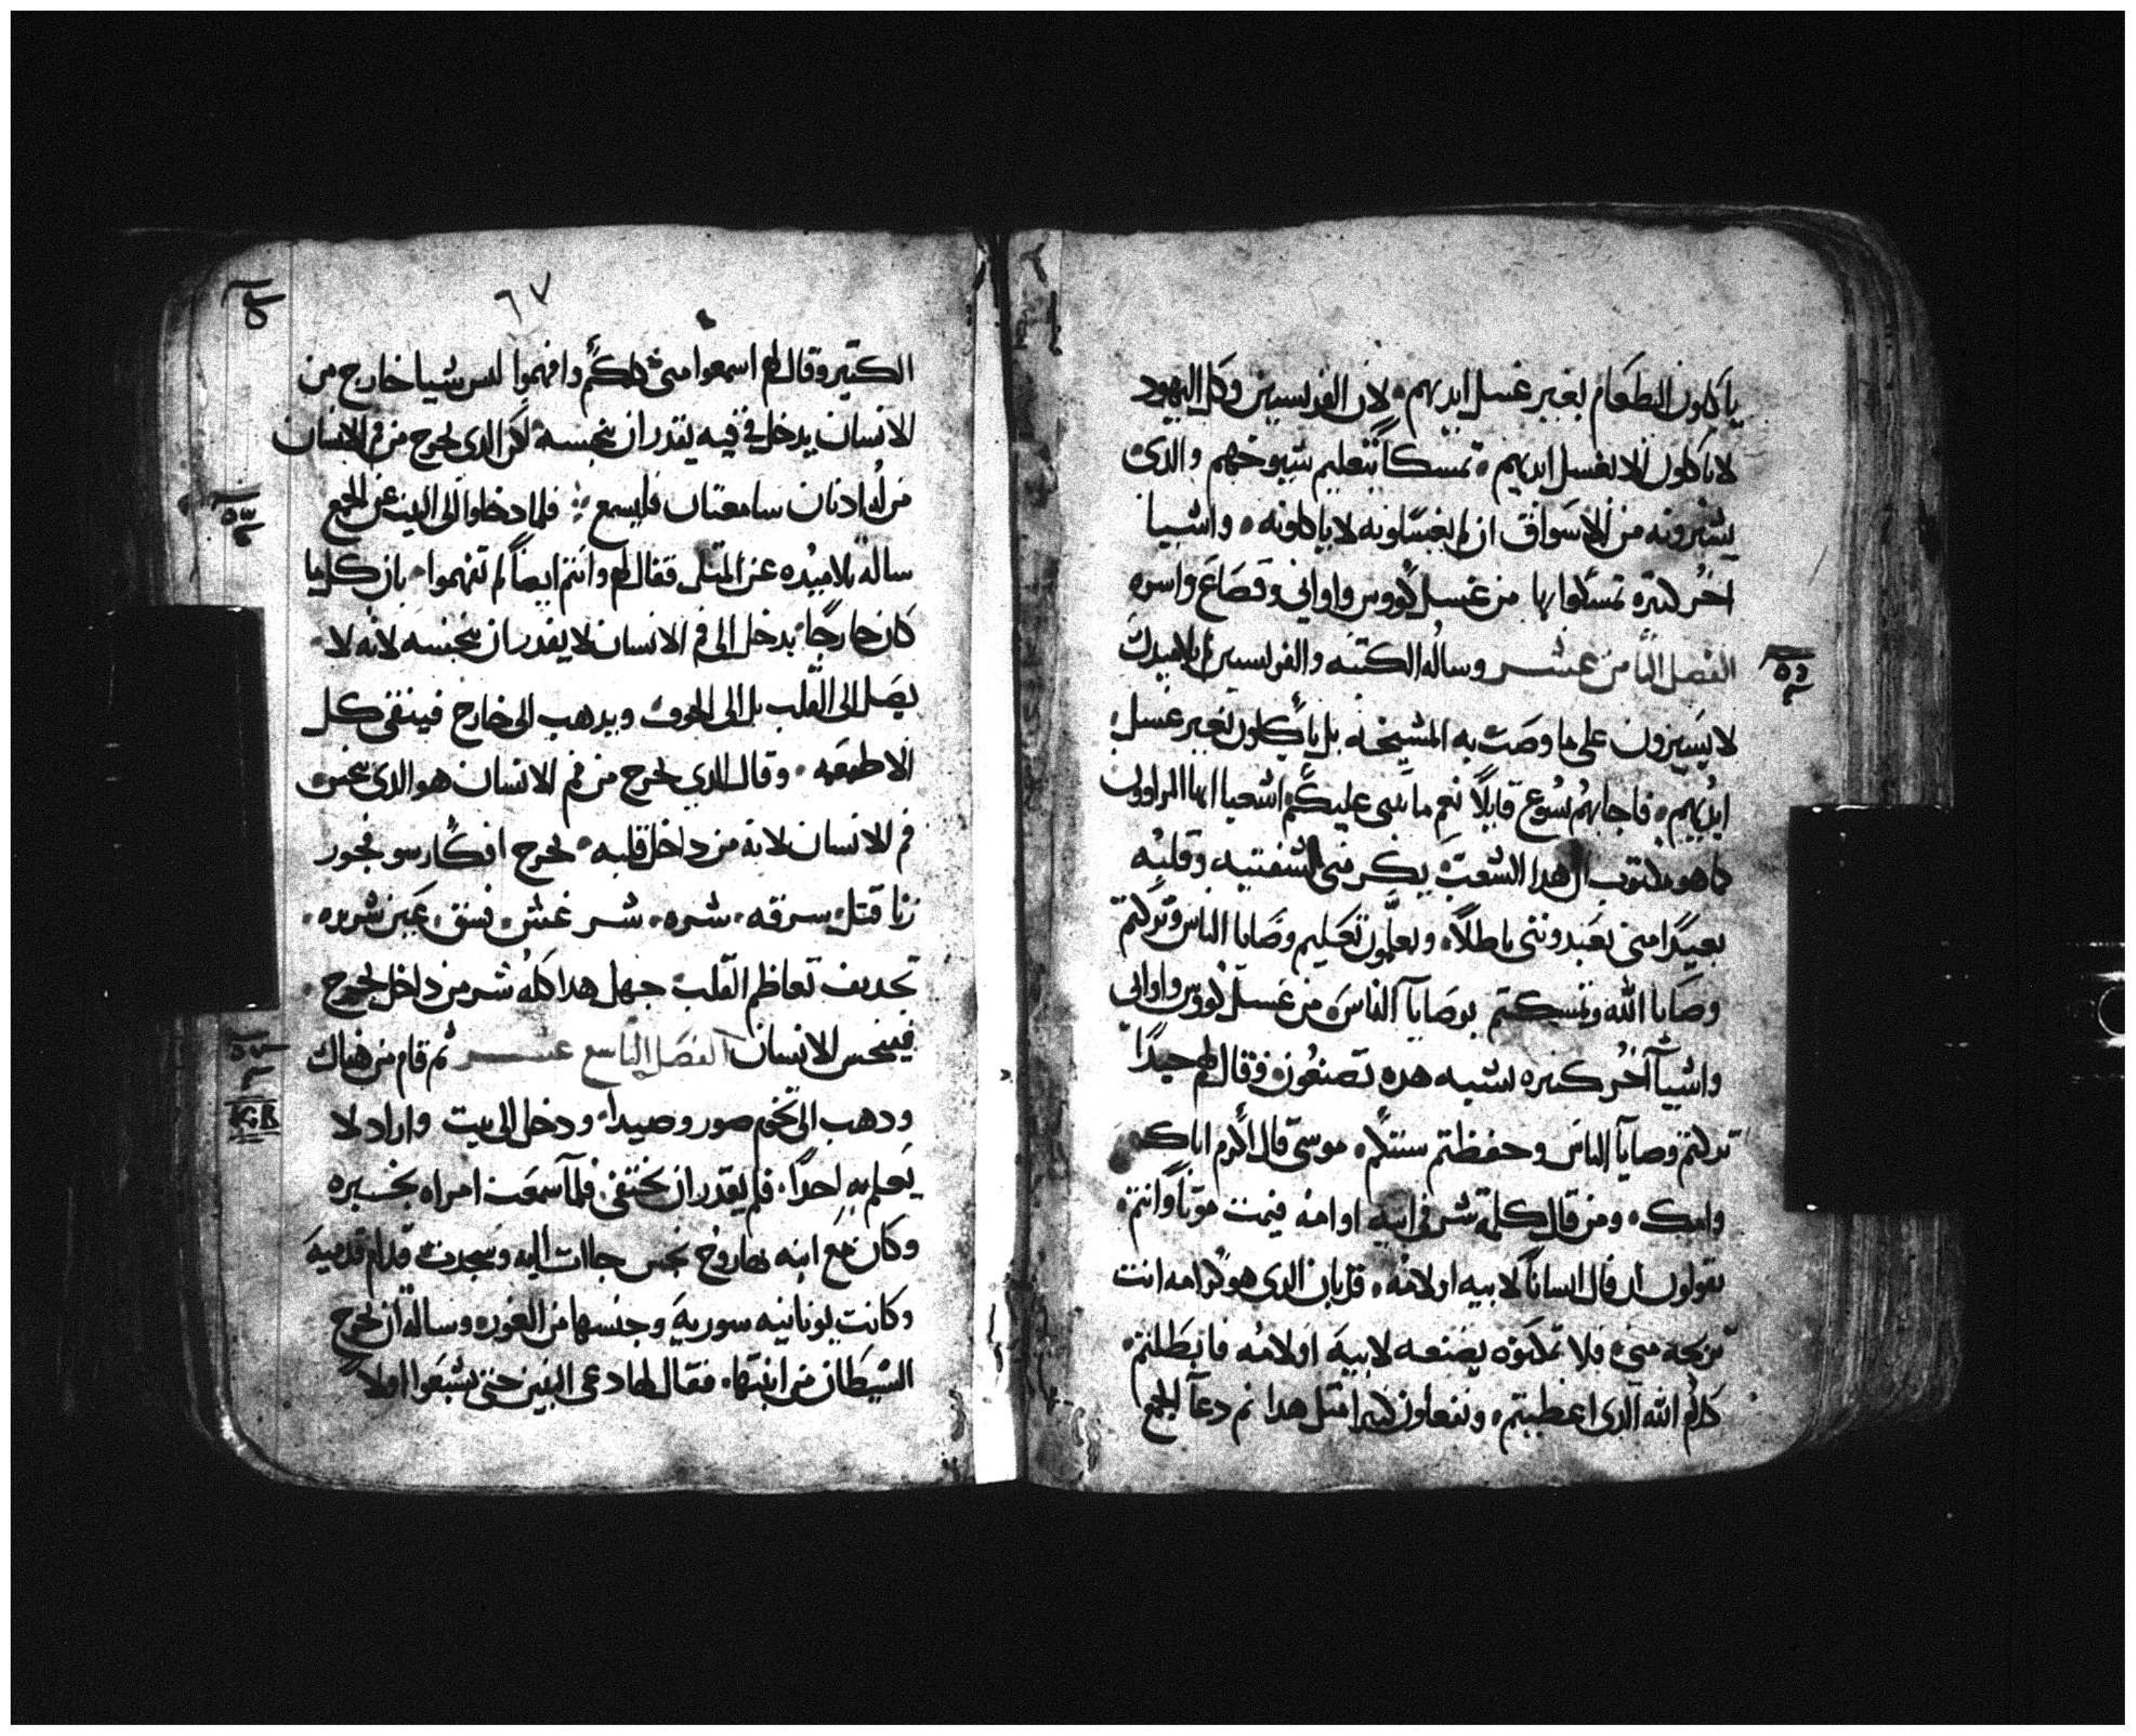 ياكلون الطعام بغير غسل ايديهم لان الفريسيين وكل اليهود
لا ياكلون الا بغسل ايديهم تمسكاً بتعليم شيوخهم والدى
يشترونه من الاسواق ان لم يغسلونه لا ياكلونه واشيا
اخر كتيره تمسكوا بها من غسل كووس واوانى وقصاع واسره
الفصل التامن عشر وساله الكتبه والفريسين تلاميدك
لا يسيرون على ما وصت به المشيخه بل ياكلون بغير غسل
ايديهم فاجابهم يسوع قايلاً نعم ما تنبى عليكم اشعيا ايها المراوون
كما هو مكتوب ان هدا الشعب يكرمنى بشفتيه وقلبه
بعيدا منى يعبدوننى باطلاً ويعلمون تعليم وصايا الناس وتركتم
وصايا الله وتمسكتم بوصايا الناس من غسل كووس واوانى
واشيا اخر كتيره تشبه هده تصنعون وقال لهم جيداً
تركتم وصايا الناس وحفظتم سنتكم موسى قال اكرم اباك
وامك ومن قال كلمة شر فى ابيه او امه فيمت موتاً وانتم
تقولون ان قال انساناً لابيه او لامه قربان الدى هو كرامه انت
تربحه منى فلا تمكنوه يصنعه لابيه او لامه فابطلتم
كلام الله الدى اعطيتم وتفعلون كتيرا متل هدا تم دعا الجمع
٦٧
الكتير وقال لهم اسمعوا منى كلكم وافهموا ليس شيا خارج من
الانسان يدخل فى فيه يقدر ان ينجسه لكن الدى يخرج من فم الانسان
من له ادنان سامعتان فليسمع فلما دخلوا الى البيت عن الجمع
ساله تلاميده عن المتل فقال لهم وانتم ايضاً لم تفهموا بان كل ما
كان خارجاً يدخل الى فم الانسان لا يقدر ان ينجسه لانه لا
يصل الى القلب بل الى الجوف ويدهب الى خارج فينقى كل
الاطعمه وقال الدى يخرج من فم الانسان هو الدى ينجس
فم الانسان لانه من داخل قلبه يخرج افكار سو فجور
زنا قتل سرقه شره شر غش فسق عين شريره
تجديف تعاظم القلب جهل هدا كله شر من داخل يخرج
فينجس الانسان الفصل التاسع عشر تم قام من هناك
ودهب الى تخوم صور وصيدا ودخل الى بيت واراد لا
يعلم به احداً فلم يقدر ان يختفى فلما سمعت امراه بخبره
وكان مع ابنه لها روح نجس جاات اليه وسجدت قدام قدميه
وكانت يونانيه سوريه وجنسها من الغور وساله ان يخرج
الشيطان من ابنتها فقال لها دعى البنين حتى يشبعوا اولاً